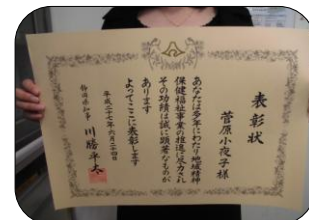 表彰状
菅原小夜子様
あなたは多年にわたり地域精神
保健福祉事業の推進に尽力され
その功績は誠に顕著なものが
あります
よってここに表彰します
平成二十七年六月二十四日
静岡県知事 川勝平太